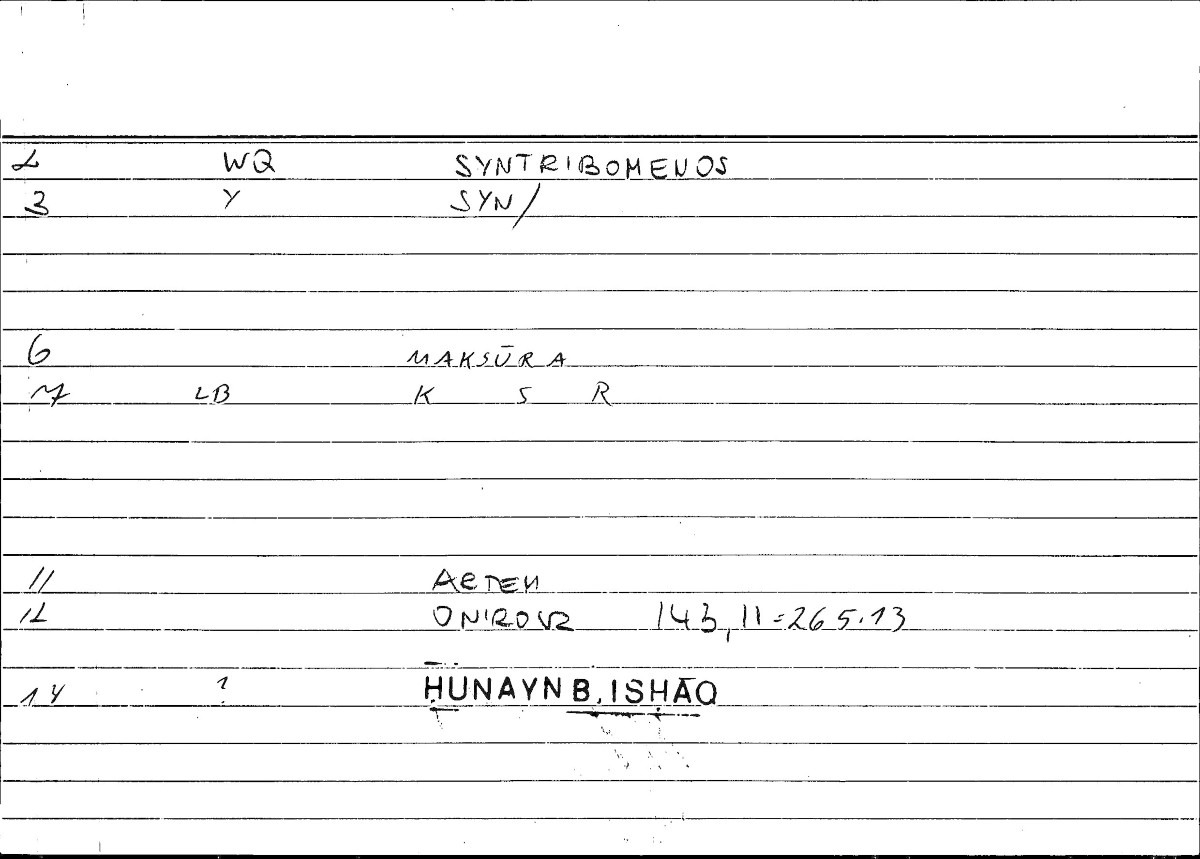 2 WQ SYNTRIBOMENOS
3 Y SYN/
6 MAKSŪRA
7 LB K S R
11 ARTEM
12 ONIROCR 143,11=265.13
14 ? ḤUNAYN B. ISḤĀQ